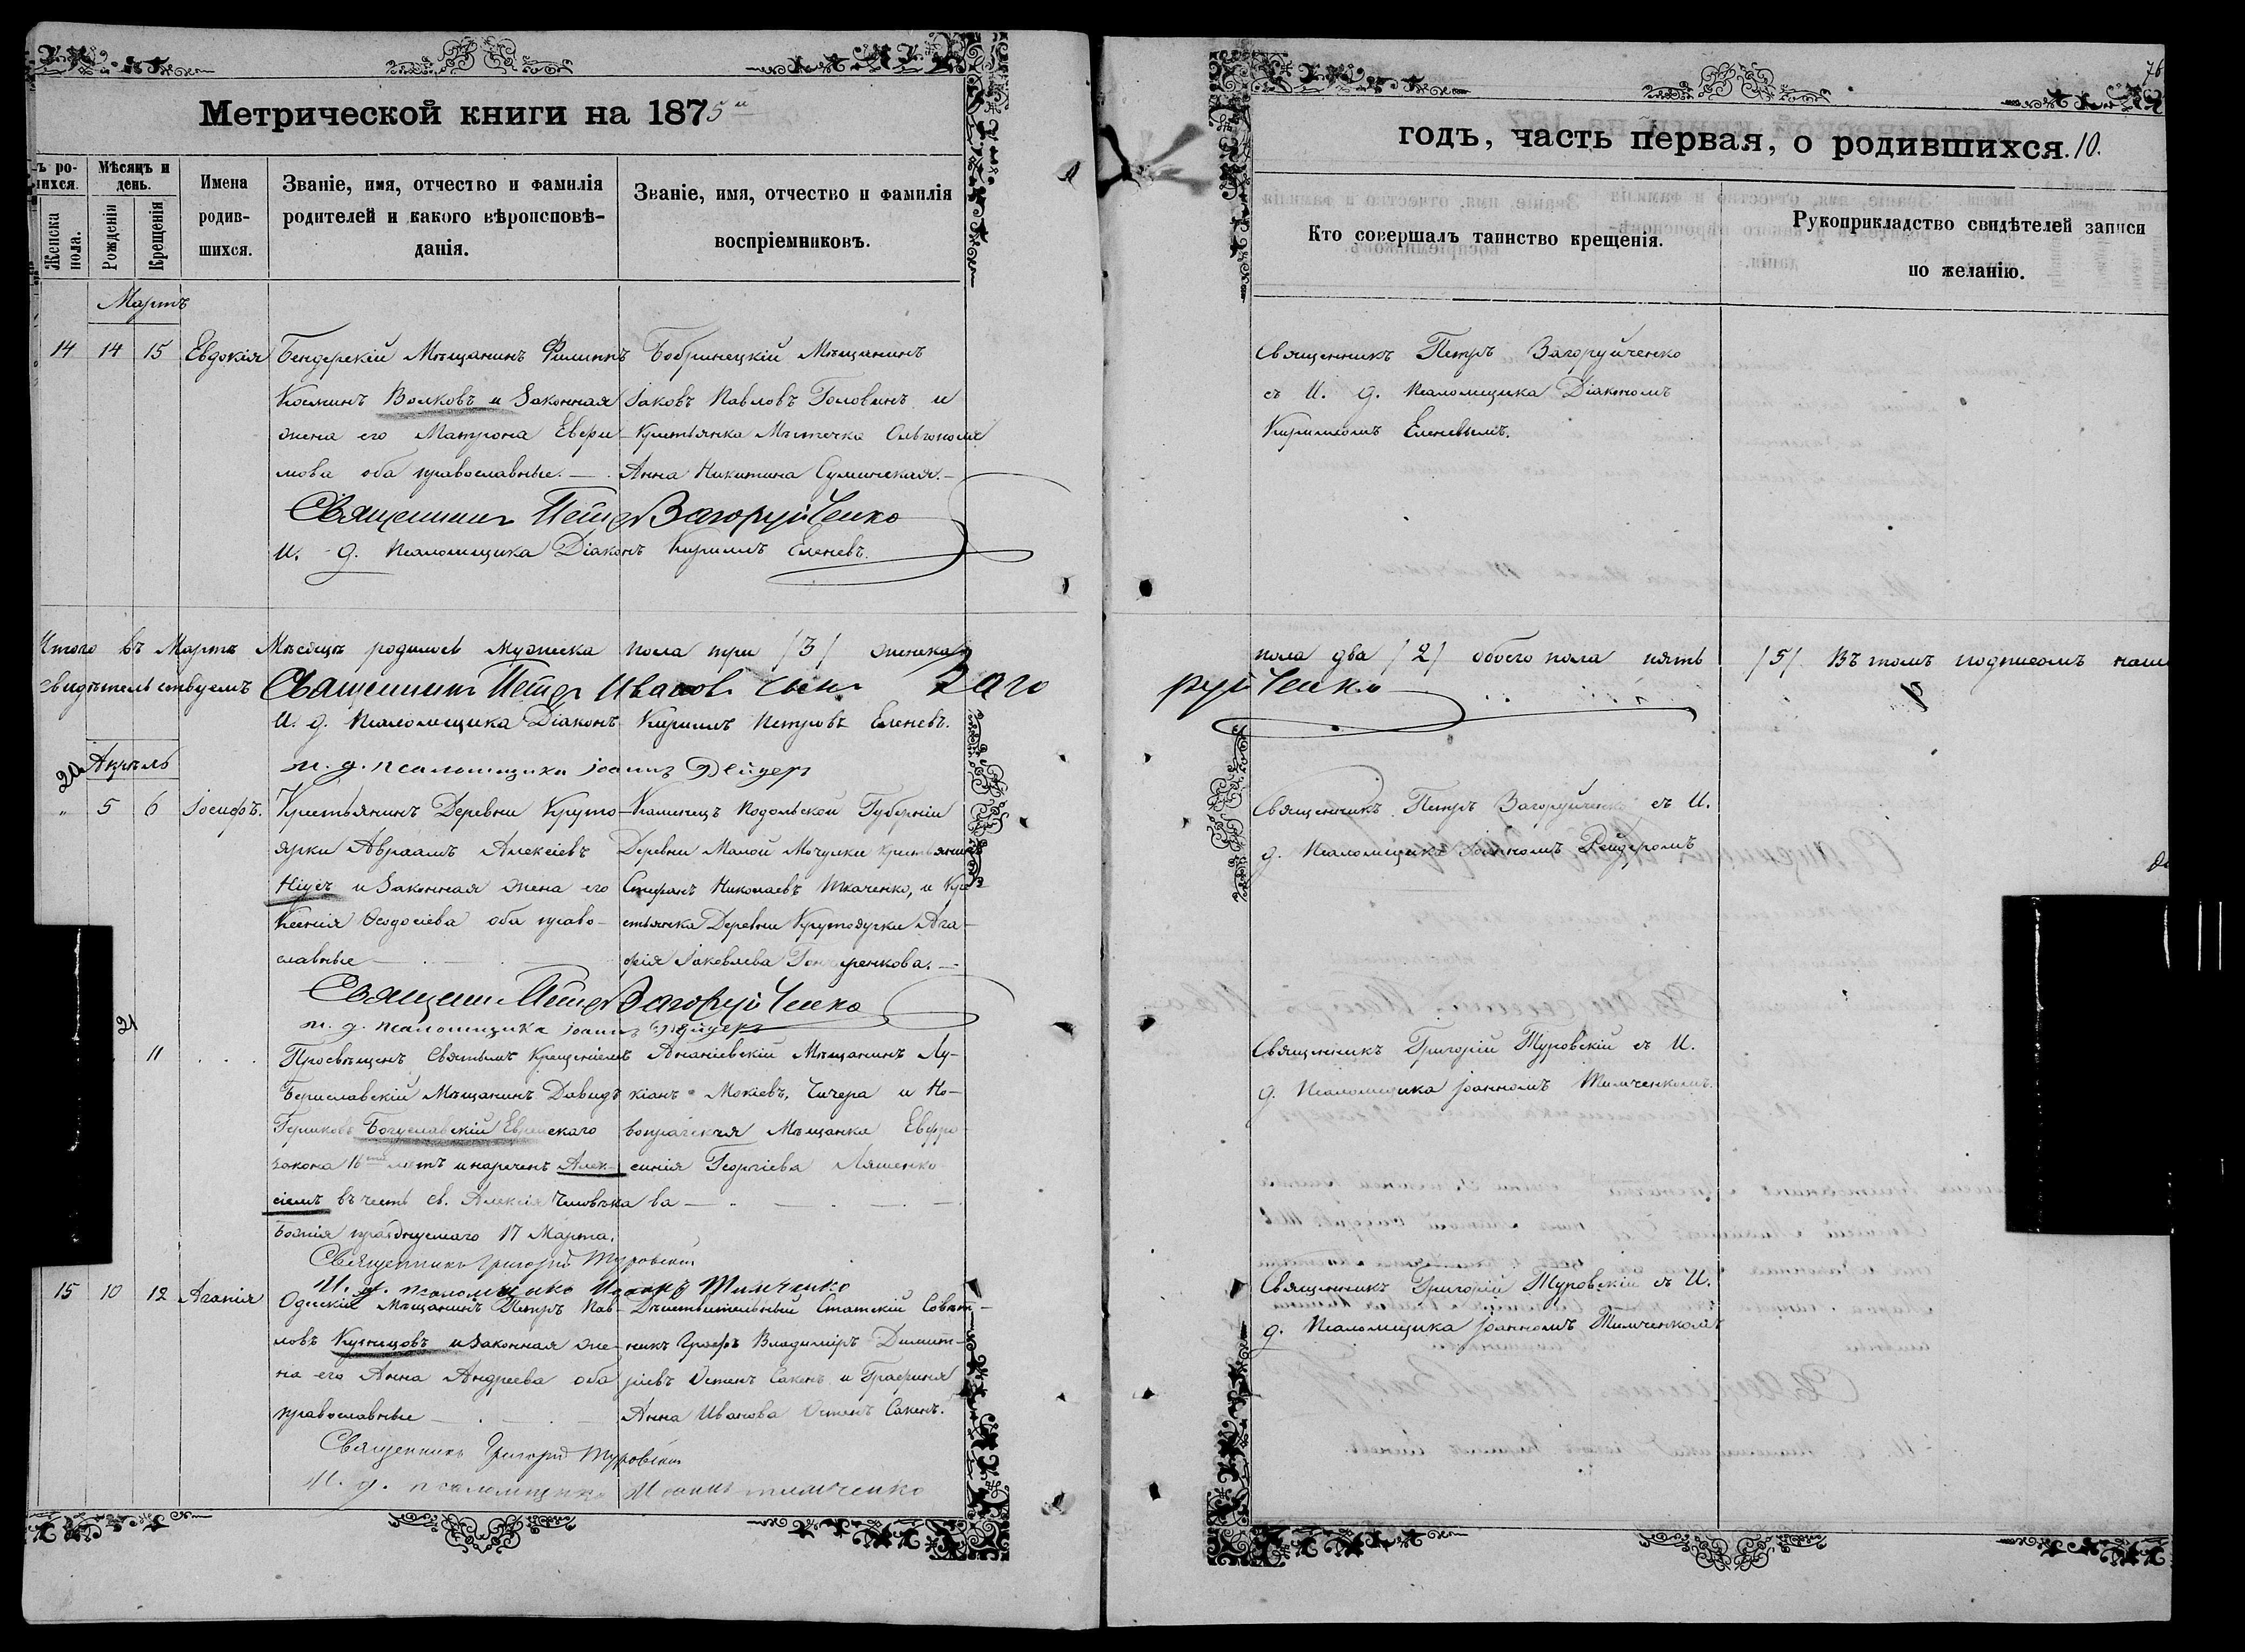 Метрической книги на 1875й
ъ ро-
шихся.
Мѣсяцъ и
день.
Женска
пола.
Рожденія
Крещенія
Имена
родив-
шихся.
Званіе, имя, отчество и фамилія
родителей и какого вѣроисповѣ-
данія.
Званіе, имя, отчество и фамилія
воспріемниковъ.
Мартъ
14 14 15 Евдокія
Бендерскій Мѣщанинъ Филиппъ
Козминъ Волковъ и законная
жена его Матрона Евфи-
мова оба православные.
Бобринецкій Мѣщанинъ
Іаковъ Павловъ Головинъ и
крестьянка Мѣстечка Ольгополя
Анна Никитина Сулинская.
Священникъ Петръ Загоруйченко
И. д. Псаломщика Діаконъ Кириллъ Еленевъ.
Итого въ Мартѣ Мѣсяцѣ родилось мужеска пола три /3/ женска
свидѣтельствуемъ Священникъ Петръ Ивановъ сынъ Заго
И. д. Псаломщика Діаконъ Кириллъ Петровъ Еленевъ.
и. д. псаломщика Іоаннъ Рейдеръ
Апрѣль
20
" 5 6 Іосифъ.
Крестьянинъ Деревни Круто-
ярки Авраамъ Алексіевъ
и законная жена его
Ксенія Ѳеодосіева оба право-
славные
Каменецъ Подольской Губерніи
Деревни Малой Мочулки крестьянинъ
Стефанъ Николаевъ Ткаченко, и Кре-
стьянка Деревни Крутоярки Ага-
фія Іаковлева Гончаренкова.
Священн Петръ Загоруйченко
и. д. псаломщика Іоаннъ Рейдеръ
21
11
Просвѣщенъ Святымъ Крещеніемъ
Бериславскій Мѣщанинъ Давидъ
Гершковъ Богуславскій Еврейскаго
закона 16ти лѣтъ и нареченъ Алек-
сіемъ въ честь св. Алексія Человѣка
Божія празднуемаго 17 Марта.
Ананіевскій Мѣщанинъ Лу-
кіанъ Мокіевъ Чичера и Но-
вопражская Мѣщанка Евфро-
синія Георгіева Ляшенко
ва
Священникъ Григорій Туровскій
И. д. псаломщика Иоаннъ Тимченко
15 10 12 Агапія
Одесскій Мѣщанинъ Петръ Пав-
ловъ Кузнецовъ и законная же-
на его Анна Андреева оба
православные
Дѣйствительный Статскій Совѣт-
никъ Графъ Владиміръ Димит-
ріевъ Остенъ Сакенъ и Графиня
Анна Иванова Остенъ Сакенъ.
Священникъ Григорій Туровскій
И. д. псаломщика Иоаннъ Тимченко
76
годъ, часть первая, о родившихся. 10.
Кто совершалъ таинство крещенія.
Рукоприкладство свидѣтелей записи
по желанію.
Священникъ Петръ Загоруйченко
съ И. д. Псаломщика Діакономъ
Кирилломъ Еленевымъ.
пола два /2/ обоего пола пять /5/. Въ томъ подписомъ наши
руйченко
Священникъ Петръ Загоруйченко съ И.
д. Псаломщика Іоанномъ Рейдеромъ
Священникъ Григорій Туровскій съ И.
д. Псаломщика Іоанномъ Тимченкомъ.
Священникъ Григорій Туровскій съ И.
д. Псаломщика Іоанномъ Тимченкомъ